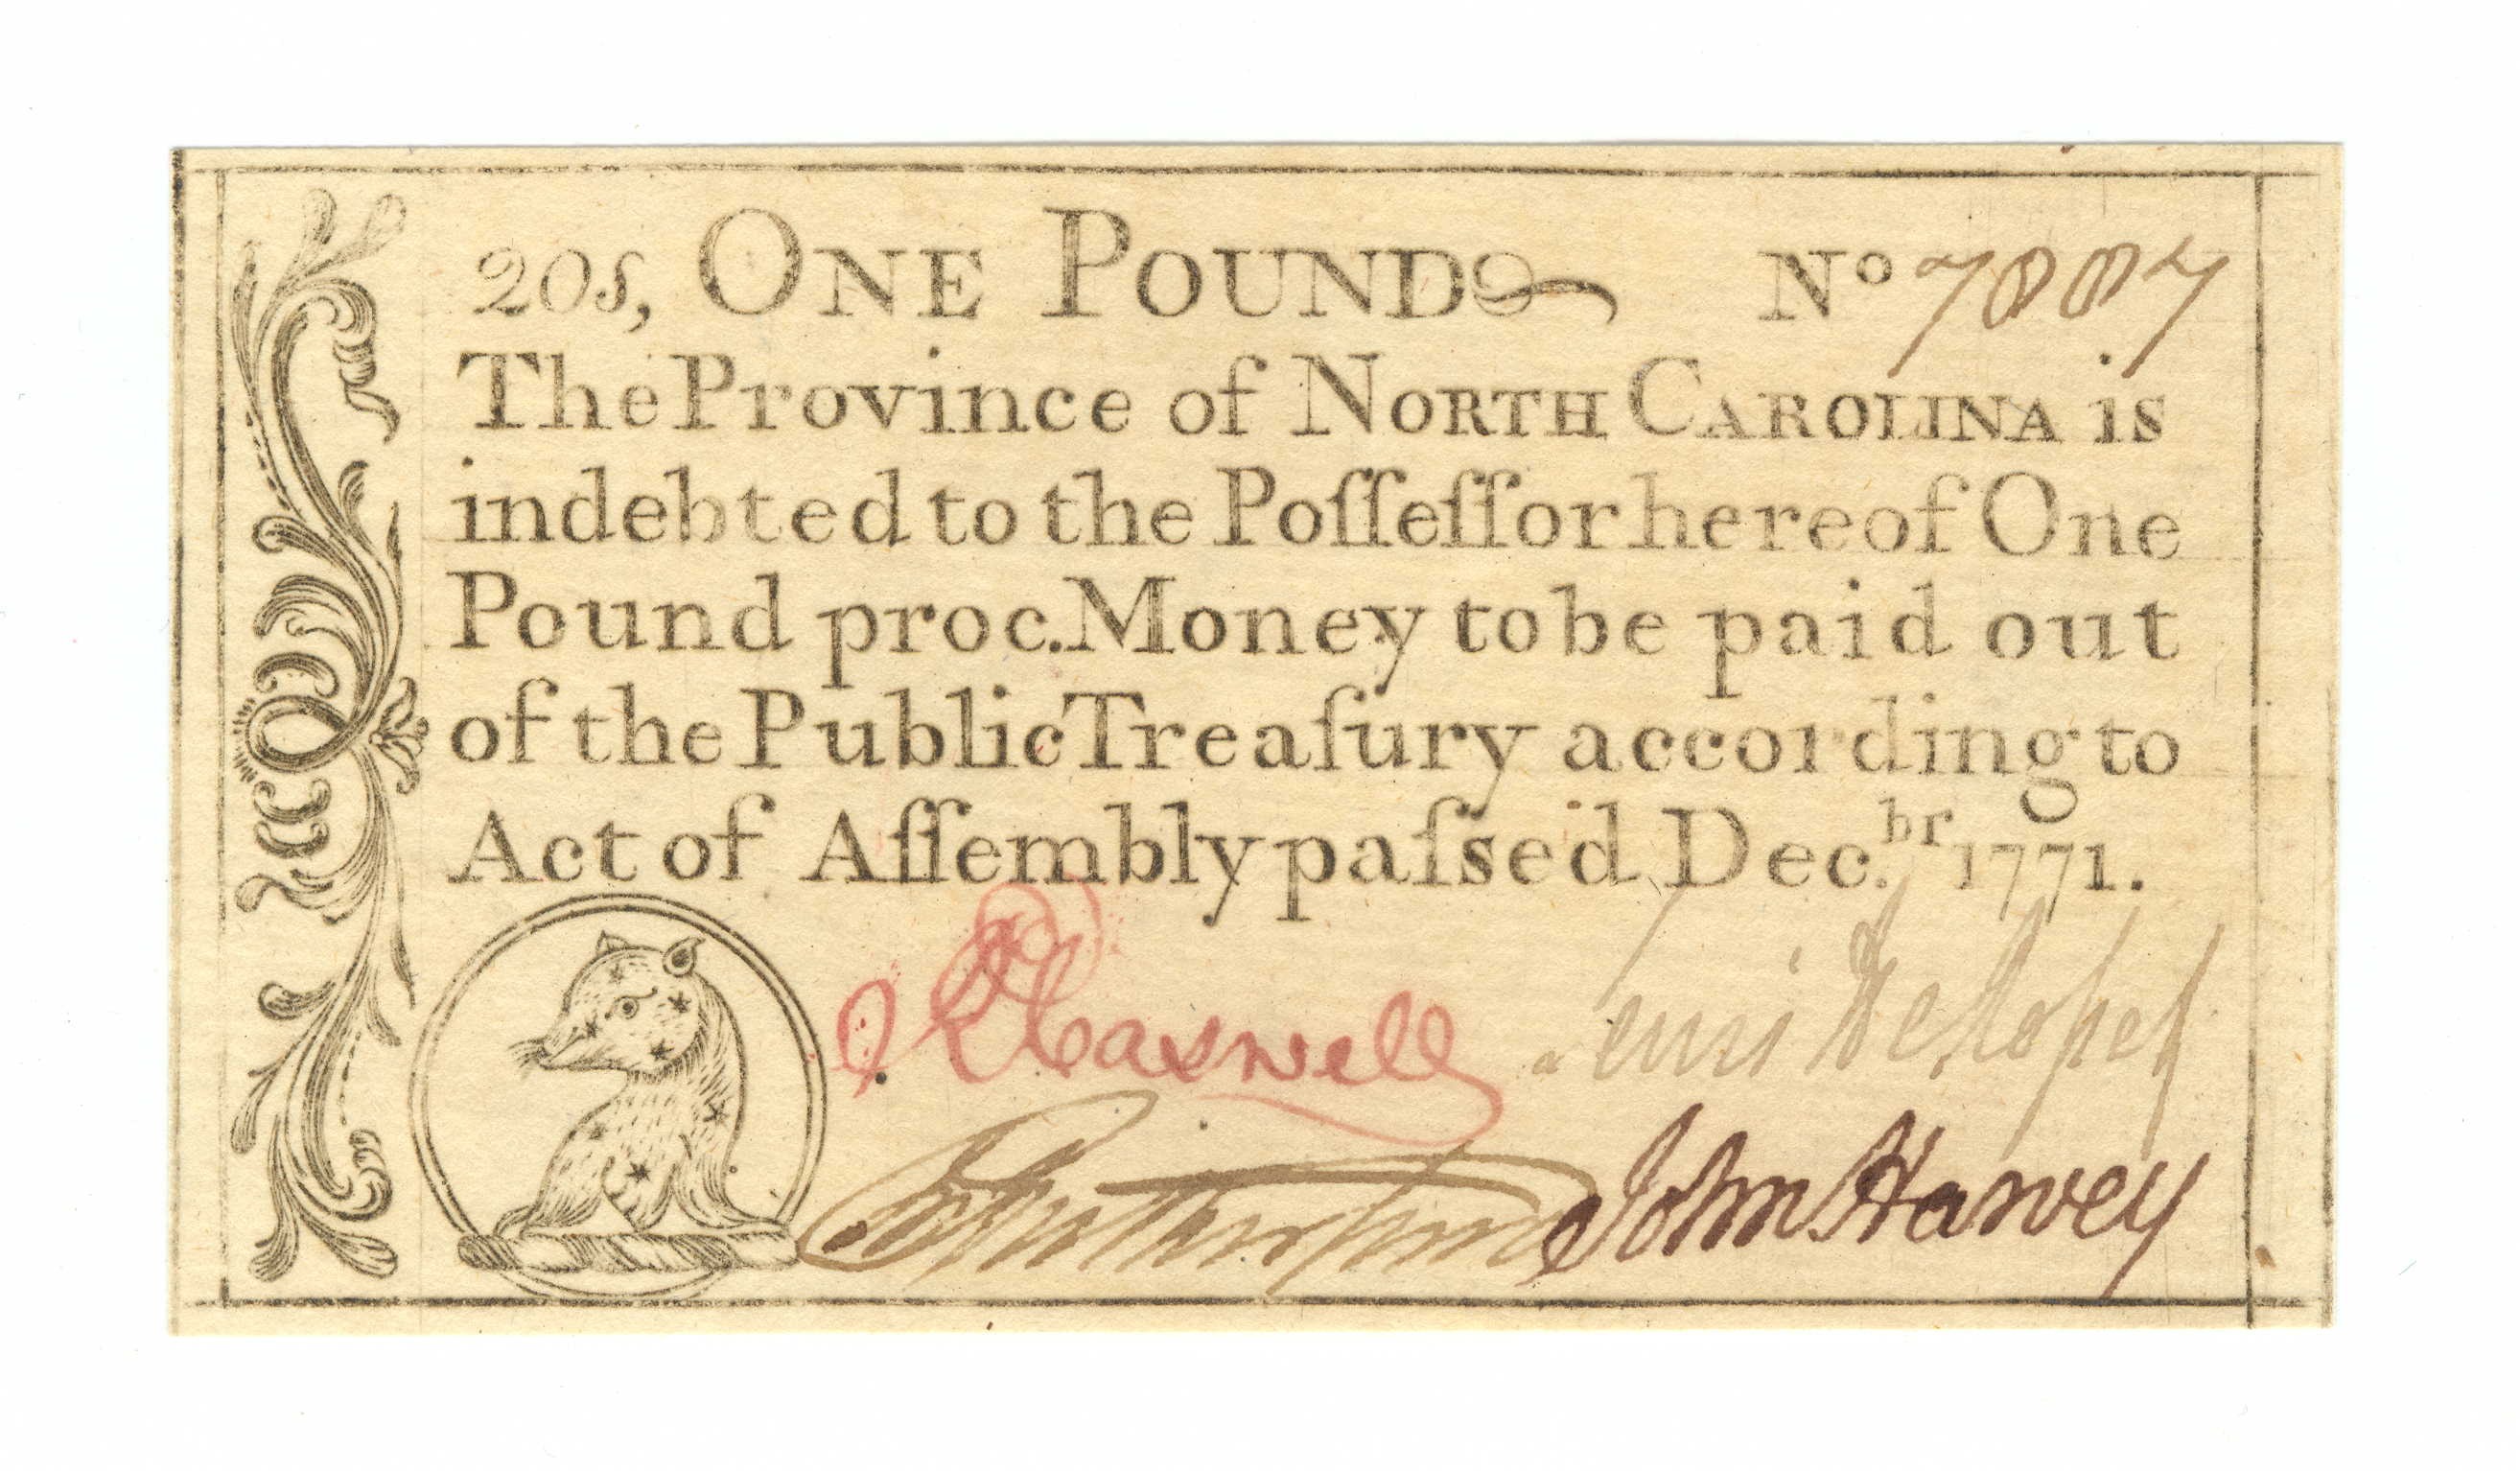 20s, ONE POUND No 7887
The Province of NORTH CAROLINA is
indebted to the Poſſeſſor hereof One
Pound proc. Money to be paid out
of the Public Treaſury according to
Act of Aſſembly paſsed Dec.br 1771.
R Caswell Lewis De Rosset
John Harvey